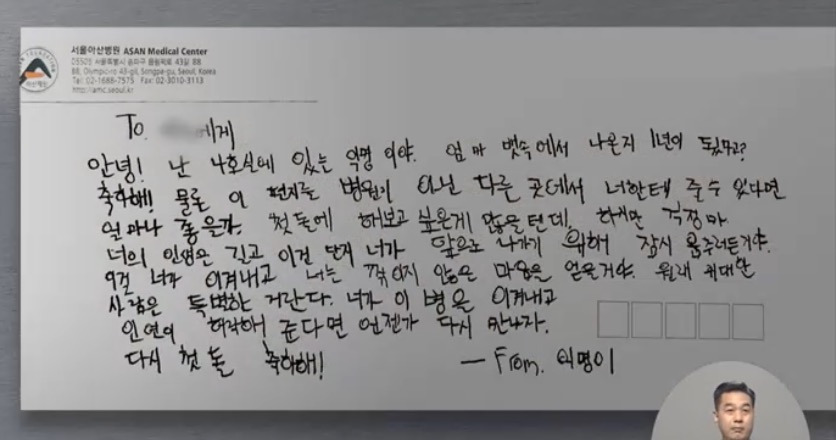 서울아산병원 ASAN Medical Center
05505 서울특별시 송파구 올림픽로 43길 88
88, Olympic-ro 43-gil, Songpa-gu, Seoul, Korea
Tel: 02-1688-7575 Fax: 02-3010-3113
http://amc.seoul.kr
To. 에게
안녕! 난 나호실에 있는 익명이야. 엄마 뱃속에서 나온지 1년이 됐다고?
축하해! 물론 이 편지를 병원이 아닌 다른 곳에서 너한테 줄 수 있다면
얼마나 좋을까. 첫돌에 해보고 싶은게 많을텐데, 하지만 걱정마
너의 인생은 길고 이건 단지 너가 앞으로 나가기 위해 잠시 움츠려든거야.
이걸 너가 이겨내고 너는 꺾이지 않을 마음을 얻을거야. 원래 위대한
사람은 특별하는 거란다. 너가 이 병을 이겨내고
인연이 허락해 준다면 언젠가 다시 만나자.
다시 첫돌 축하해! — From. 익명이